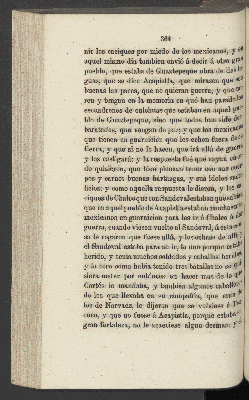 364
nir los caciques por miedo de los mexicanos, y en
aquel mismo dia tambien envió á decir á otro gran
pueblo, que estaba de Guaztepeque obra de dos le-
guas, que se dice Acapistla, que mirasen que son
buenas las paces, que no quieran guerra; y que mi-
ren y tengan en la memoria en qué han parado los
escuadrones de culchúas que estaban en aquel pue-
blo de Guaztepeque, sino que todos han sido des-
baratados; que vengan de paz, y que los mexicanos
que tienen en guarnicion que los echen fuera de su
tierra, y que si no lo hacen, que irá allá de guerra
y los castigará: y la respuesta fué que vayan cuan-
do quisieren, que bien piensan tener con sus cuer-
pos y carnes buenas hartazgas, y sus ídolos sacri-
ficios: y como aquella respuesta le dieron, y los ca-
ciques de Chalco que con Sandoval estaban que sabian
que en aquel pueblo de Acapistla estaban muchos mas
mexicanos en guarnicion para les ir á Chalco á dar
guerra, cuando viesen vuelto al Sandoval, á esta cau-
sa le rogaron que fuese allá, y los echase de allí, y
el Sandoval estaba para no ir, lo uno porque estaba
herido, y tenia muchos soldados y caballos heridos,
y lo otro como habia tenido tres batallas no se qui-
siera meter por entónces en hacer mas de lo que
Cortés le mandaba, y tambien algunos caballeros
de los que llevaba en su compañía, que eran de
los de Narvaez, le dijeron que se volviese á Tez-
cuco, y que no fuese á Acapistla, porque estaba en
gran fortaleza, no le acaeciese algun desman; y el